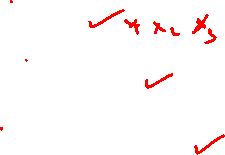 ✓ x x₂ x₃
✓
✓